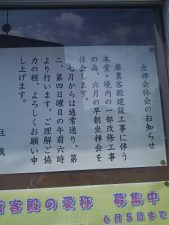 坐禅会休会のお知らせ
座裏客殿建設工事に伴う
本堂・境内の一部改修工事
の為、六月の早朝坐禅会を
休会します。
七月からは通常通り、第
二、第四日曜日の午前六時
より行います。ご理解ご協
力の程、よろしくお願い申
し上げます。
住職
客殿の愛称 募集中
6月5日まで